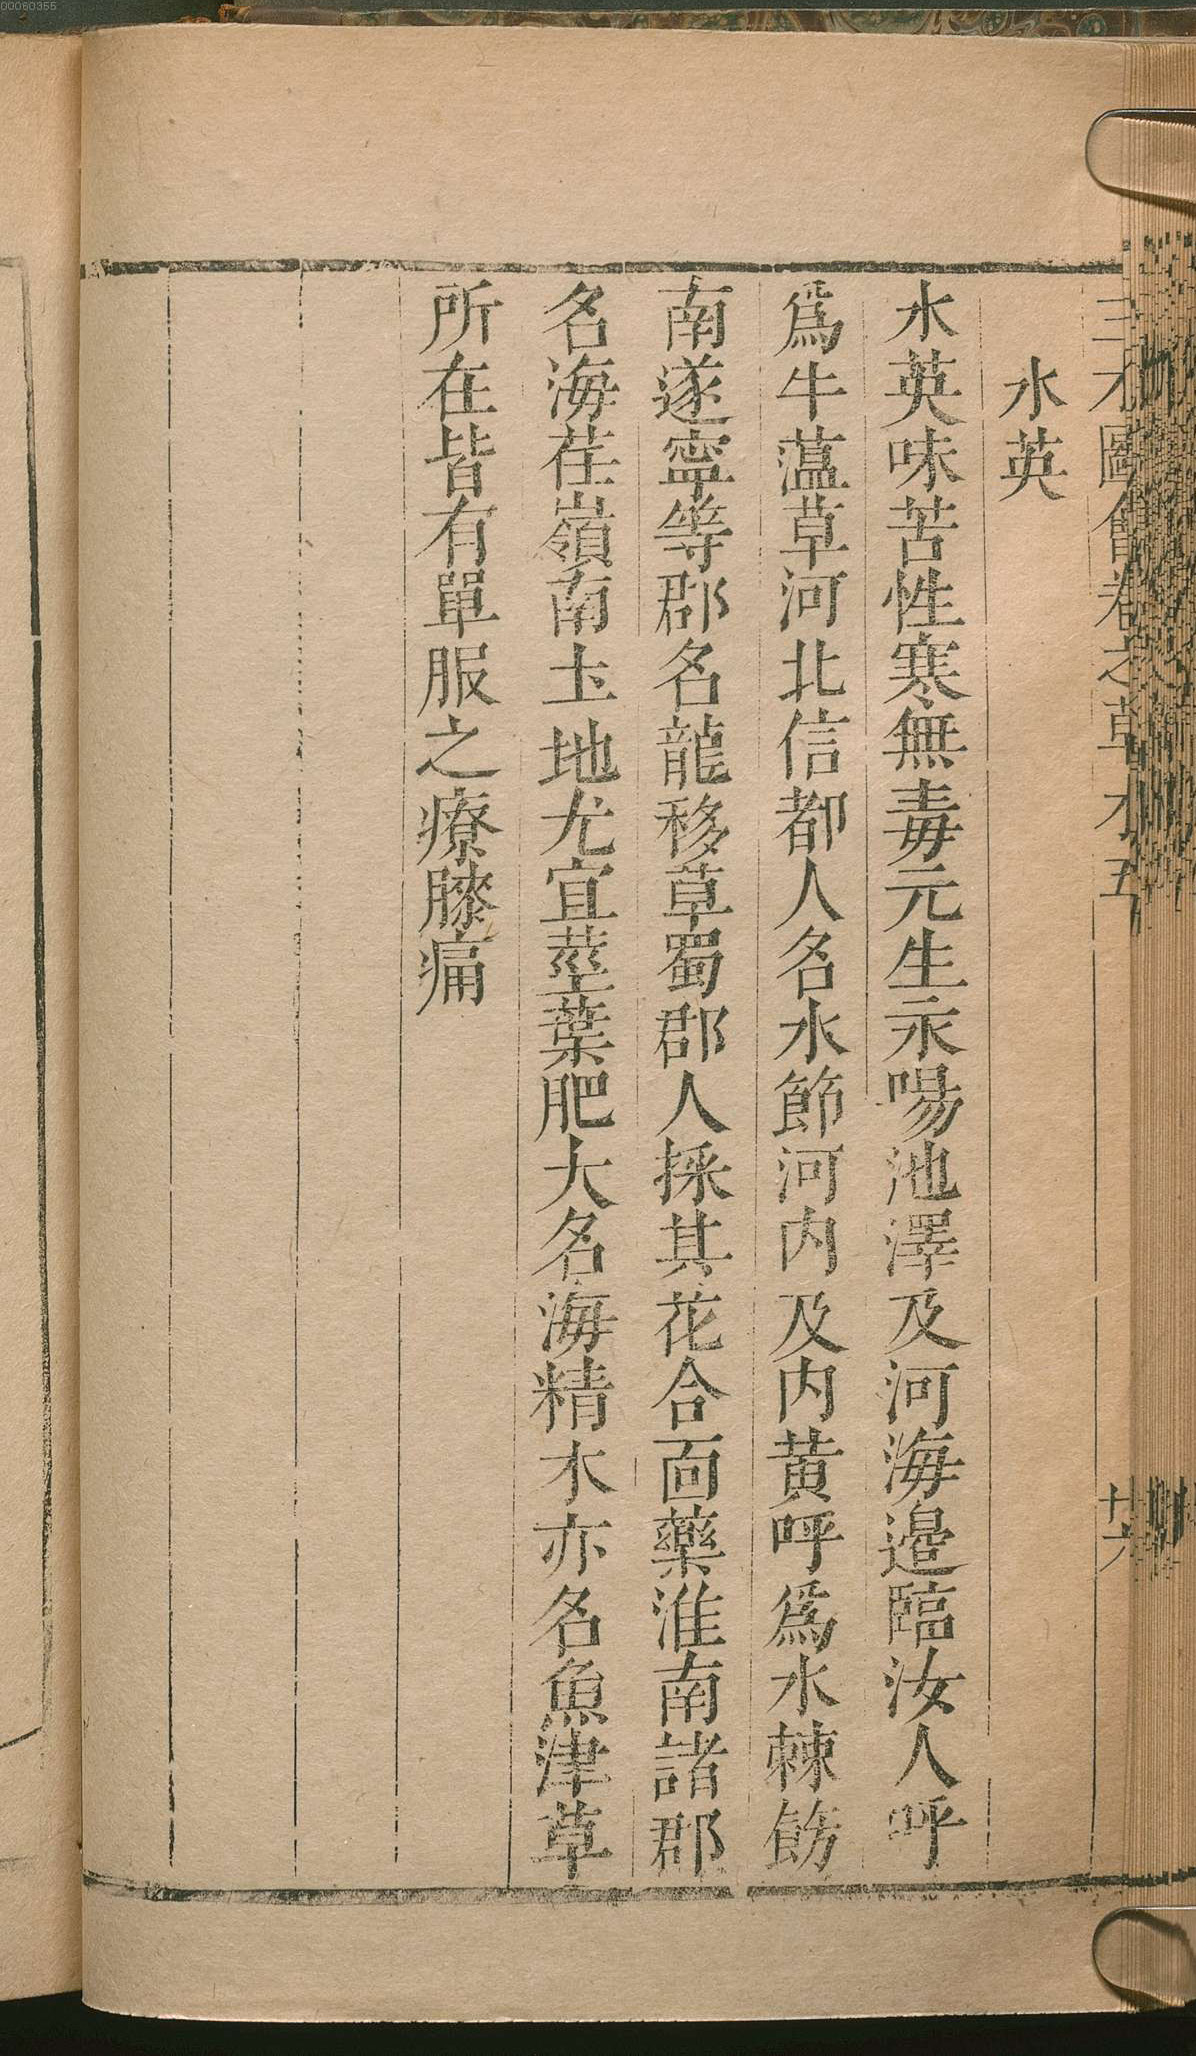 00060355
三才圖會卷之草木五
廿六
水英
水英味苦性寒無毒元生永陽池澤及河海邊臨汝人呼
爲牛葒草河北信都人名水節河内及内黄呼爲水棘劍
南遂寧等郡名龍移草蜀郡人採其花合面藥淮南諸郡
名海荏嶺南𡈽地尤宜莖葉肥大名海精木亦名魚津草
所在皆有單服之療膝痛